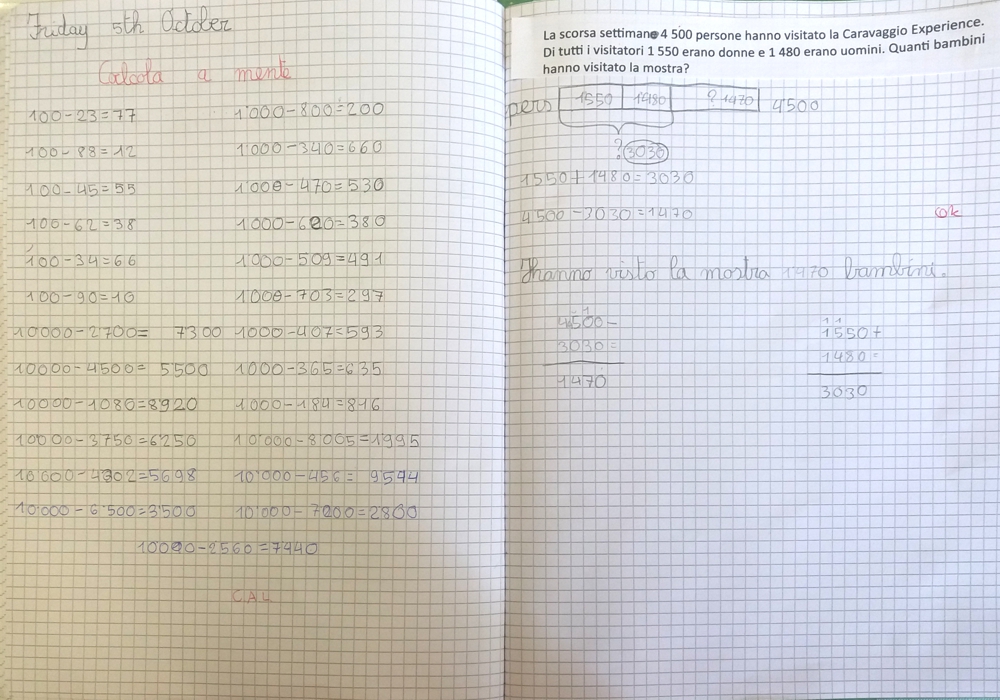 Friday 5th October
Calcola a mente
100-23=77
100-88=12
100-45=55
100-62=38
100-34=66
100-90=10
10000-2700= 7300
10000-4500= 5500
10000-1080=8920
10000-3750=6250
10000-4302=5698
10000-6500=3500
1'000-800=200
1'000-340=660
1'000-470=530
1000-620=380
1'000-509=491
1000-703=297
1000-407=593
1000-365=635
1000-184=816
10'000-8005=1995
10'000-456= 9544
10'000-7200=2800
10000-2560=7440
C.A.L
La scorsa settimane 4 500 persone hanno visitato la Caravaggio Experience.
Di tutti i visitatori 1 550 erano donne e 1 480 erano uomini. Quanti bambini
hanno visitato la mostra?
pers 1550 1480 ? 1470 4500
? 3030
1550+1480=3030
4500-3030=1470
ok
Hanno visto la mostra 1470 bambini.
4500-
3030=
1470
11
1550+
1480=
3030